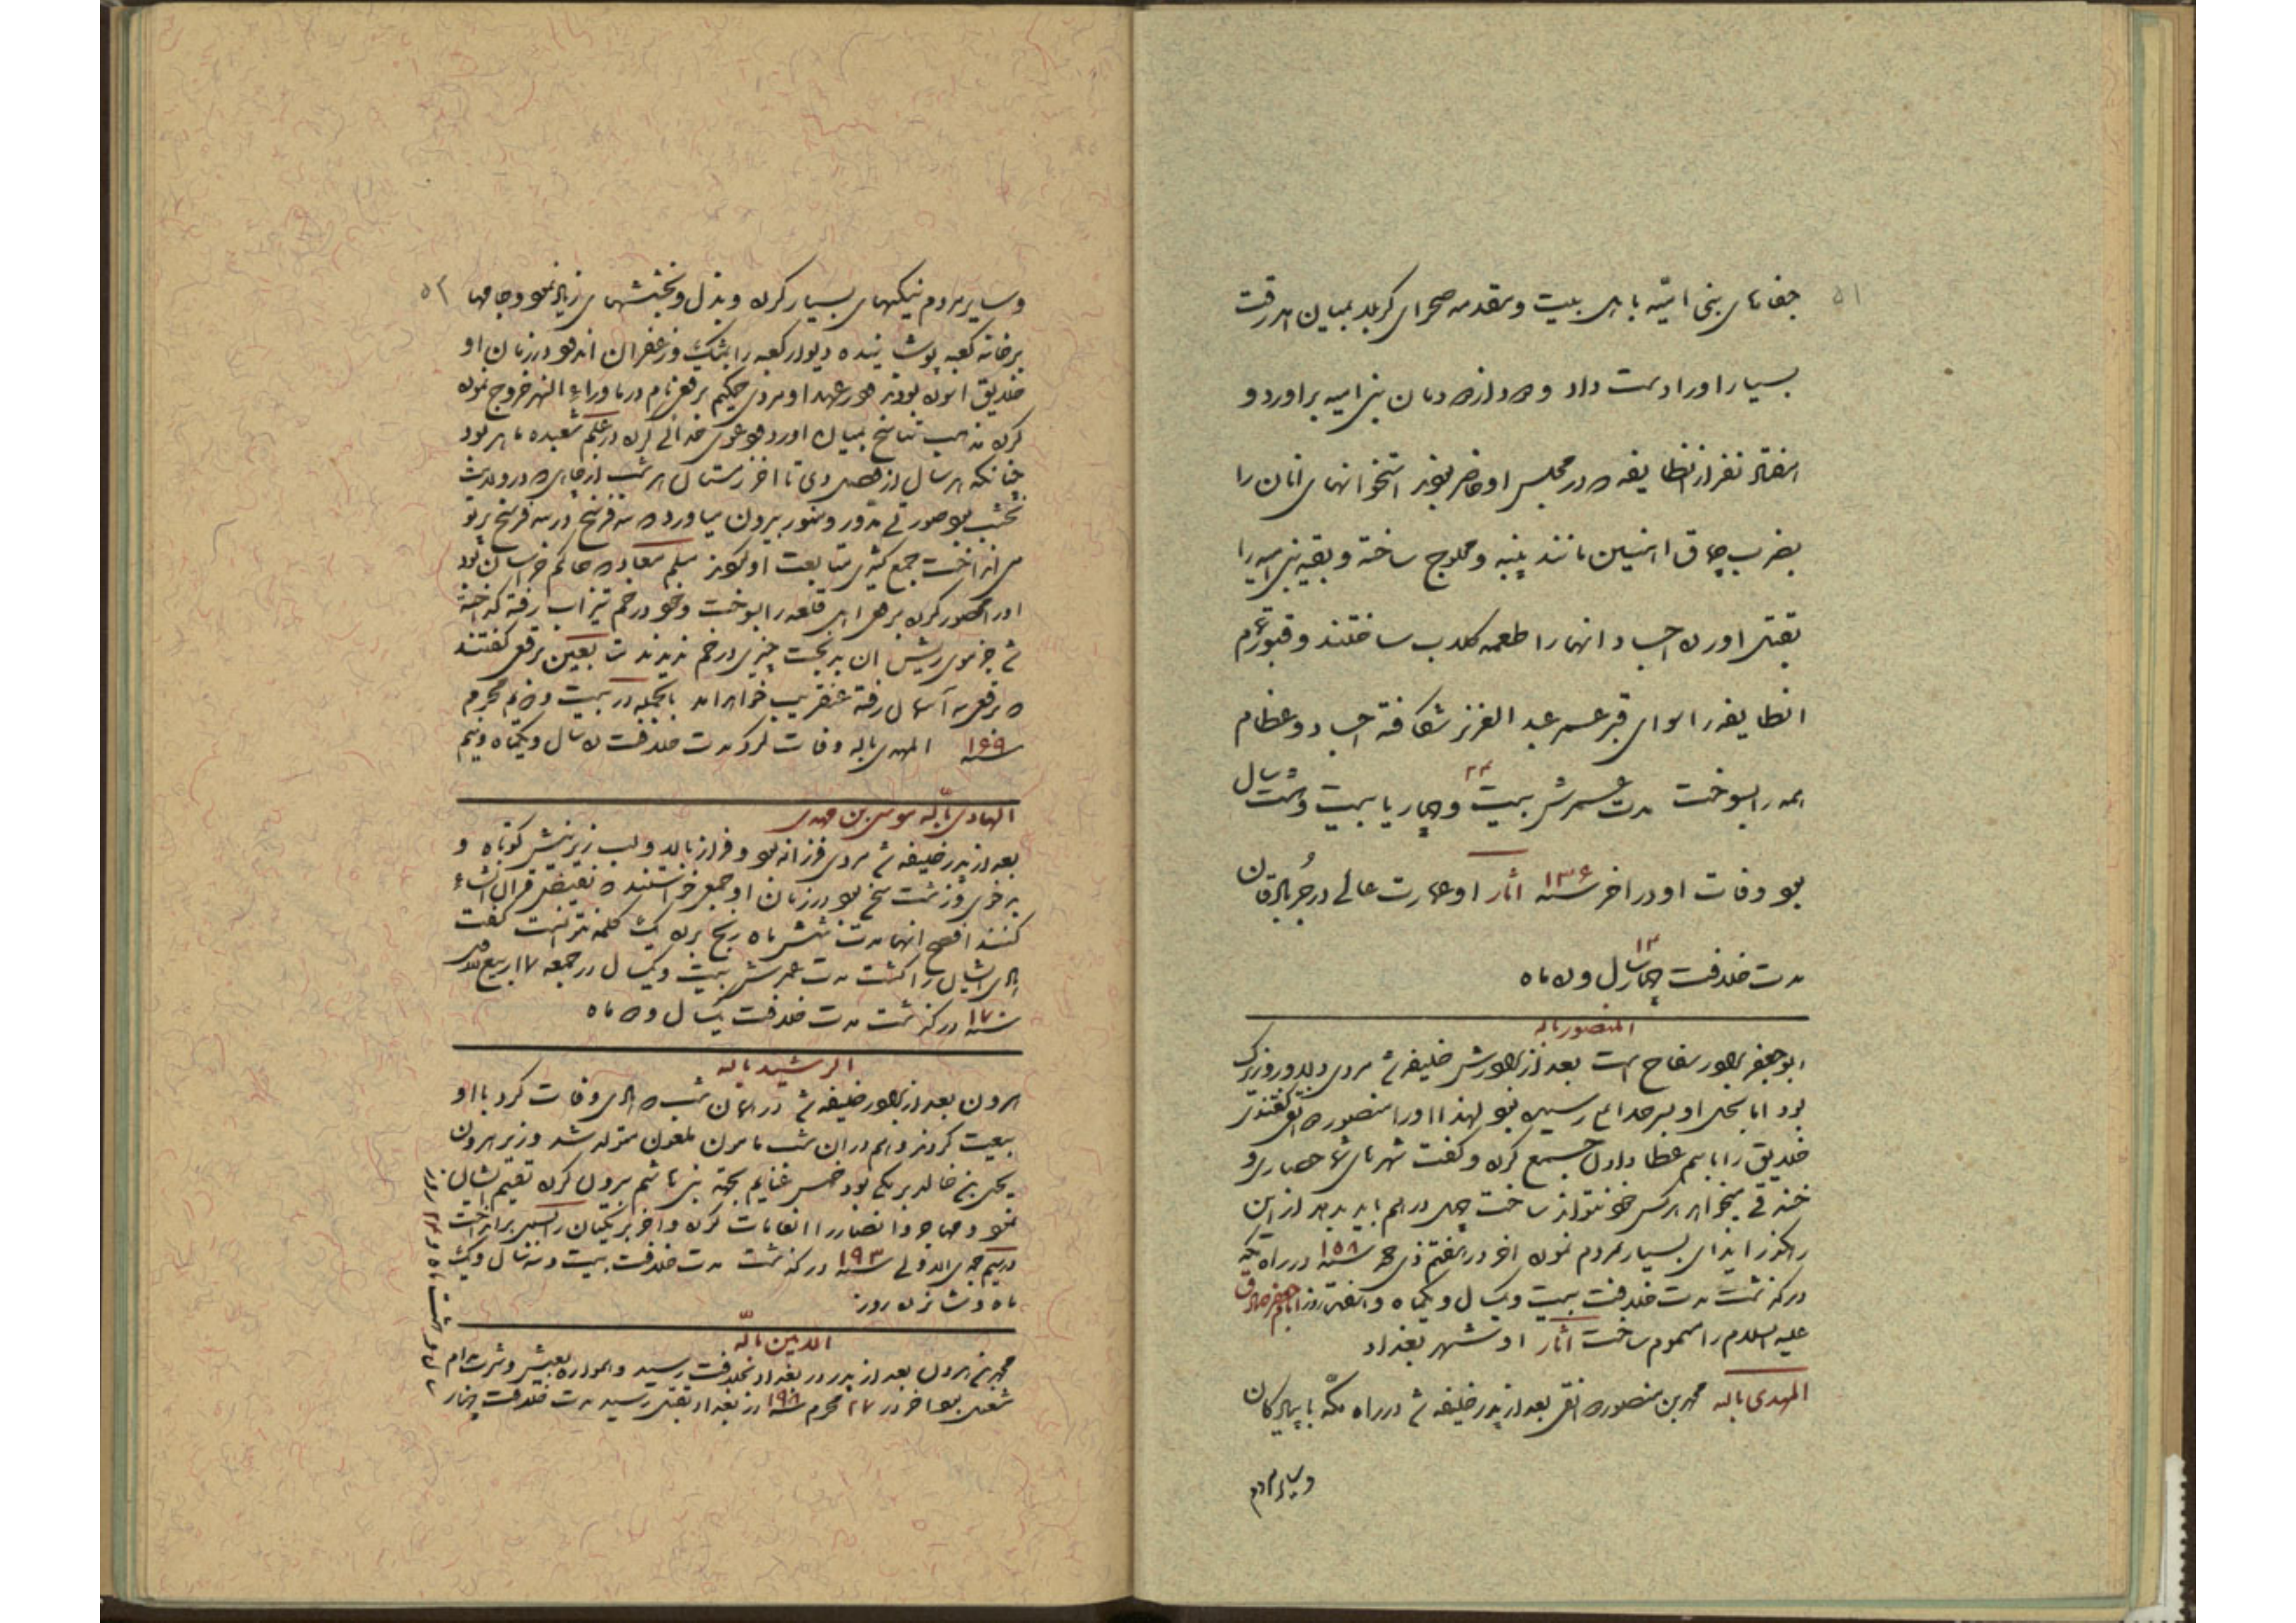 ۵۱
جفاهای بنی امیّه با اهل بیت و مقدمه صحرای کربلا بمیان امد رقت
بسیار او را دست داد و دود از دودمان بنی امیه براورد و
هفتاد نفر از انطایفه که در مجلس او حاضر بودند استخوانهای انان را
بضرب چماق اهنین مانند پنبه و محلوج ساخته و بقیه بنی امیه را
بقتل اورده اجساد انها را طعمه کلاب ساختند و قبور تمام
انطایفه را سوای قبر عمر عبد العزیز شکافته اجساد و عظام
همه را بسوخت مدت عمرش بیست و چهار یا بیست و هشت سال
بود وفات او در اخر سنه ۱۳۶ اثار او عمارت عالی در
مدت خلافت چهار سال و ده ماه
المنصور بالله
ابو جعفر برادر سفاح است بعد از برادرش خلیفه شد مردی دلاور و زیرک
بود اما بخل او بسرحد رسیده بود لهذا او را منصور دوانقی گفتندی
خلایق را باسم عطا دادن جمع کرده و گفت شهرهای شما حصاری و
خندقی میخواهد هرکس خود نتواند ساخت چهل درهم باید بدهد از این
رهگذر ایذای بسیار بمردم نموده اخر در هفتم ذی حجه سنه ۱۵۸ در راه مکه
درگذشت مدت خلافت بیست و یکسال و یکماه و هفده روز امام جعفر صادق
علیه السلام را مسموم ساخت اثار او شهر بغداد
المهدی بالله محمد بن منصور دوانقی بعد از پدر خلیفه شد در راه مکّه با پیادگان
و سایر مردم
۵۲
و سایر مردم نیکیهای بسیار کرده و بذل و بخششهای زیاد نمود و جامها
بر خانه کعبه پوشانیده دیوار کعبه را بمشک و زعفران اندود در زمان او
خلایق اسوده بودند در عهد او مردی حکیم برقعی نام در ماوراء النهر خروج نموده
کرده مذهب تناسخ بمیان اورد و دعوی خدائی کرده در علم شعبده ماهر بود
چنانکه هر سال از فصل دی تا اخر زمستان هر شب از چاهی که در ولایت
نخشب بود صورتی مدور و منور بیرون میاورد که سه فرسخ در سه فرسخ پرتو
می انداخت جمع کثیری متابعت او نمودند مسلم معاد که حاکم خراسان بود
او را محصور کرده قلعه را بسوخت و خود در خم تیزاب رفته گداخته
شد جز موی ریش ان بدبخت چیزی در خم ندیدند تابعین برقعی گفتند
که برقعی به آسمان رفته عنقریب خواهد امد بالجمله در بیست و دویم محرم
سنه ۱۶۹ المهدی بالله وفات کرد مدت خلافت ده سال و یکماه و نیم
الهادی بالله موسی بن مهدی
بعد از پدر خلیفه شد مردی فرزانه بود و دراز بالا و لب زیرینش کوتاه و
بدخوی و زشت سخ بود در زمان او جمعی خواستند که نقیض قران انشاء
کنند افصح انها مدت شش ماه رنج برده یک کلمه نتوانست گفت
هادی ایشان را کشت مدت عمرش بیست و یکسال در جمعه ۱۷ ربیع الاول
سنه ۱۷۰ درگذشت مدت خلافت یکسال و دو ماه
الرشید بالله
هرون بعد از برادر خلیفه شد در همان شب که هادی وفات کرد با او
بیعت کردند و هم در ان شب مامون ملعون متولد شد وزیر هرون
یحیی بن خالد برمکی بود خمس غنایم بجهة بنی هاشم بیرون کرده تقسیم ایشان
نمود و مهاجر و انصار را انعامات کرده و اخر برمکیان را بسی برانداخت
در سیم جمادی الاولی سنه ۱۹۳ درگذشت مدت خلافت بیست و سه سال و یک
ماه و شانزده روز
الامین بالله
محمد بن هرون بعد از پدر در بغداد بخلافت رسید و همواره بعیش و شرب مدام
شغل بود اخر در ۲۷ محرم سنه ۱۹۸ در بغداد بقتل رسید مدت خلافت چهار